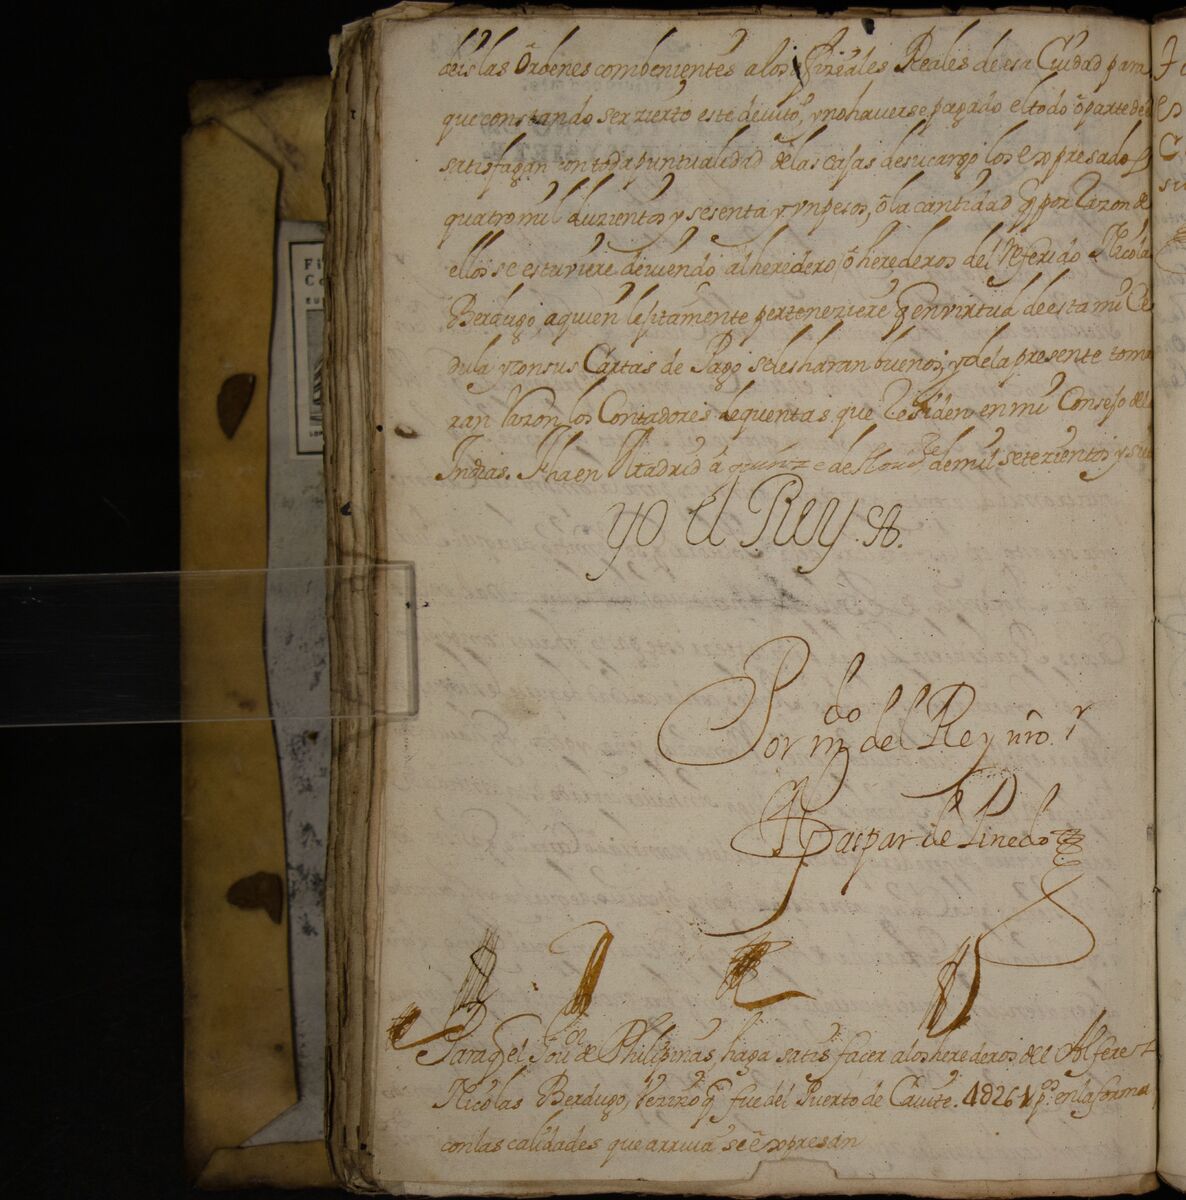 deis las Ordenes combenientes a los ofiziales Reales de esa Ciudad para
que constando ser zierto este devito, y no haverse pagado el todo ò parte de el
satisfagan con toda puntualidad de las cajas de su cargo los expresados
quatro mil duzientos y sesenta y un pesos, ò la cantidad q por Razon de
ellos se estuviere deviendo al heredero, ò herederos del Referido Nicolas
Berdugo, a quien lexitamente perteneziere q en virtud de esta mi Ce
dula, y con sus Cartas de Pago se les haran buenos, y de la presente toma
ran Razon los Contadores de quentas que Residen en mi Consejo de las
Indias. fha en Madrid à quinze de de mil setezientos y
yo el Rey
Por mdo del Rey nro sr
D
Gaspar de Pinedo
Para q el Gouor de Philipinas haga satisfacer a los herederos del Alferez
Nicolas Berdugo, vezino q fue del Puerto de Cavite. 4U261 ps en la forma
con las calidades que arriva se expresan